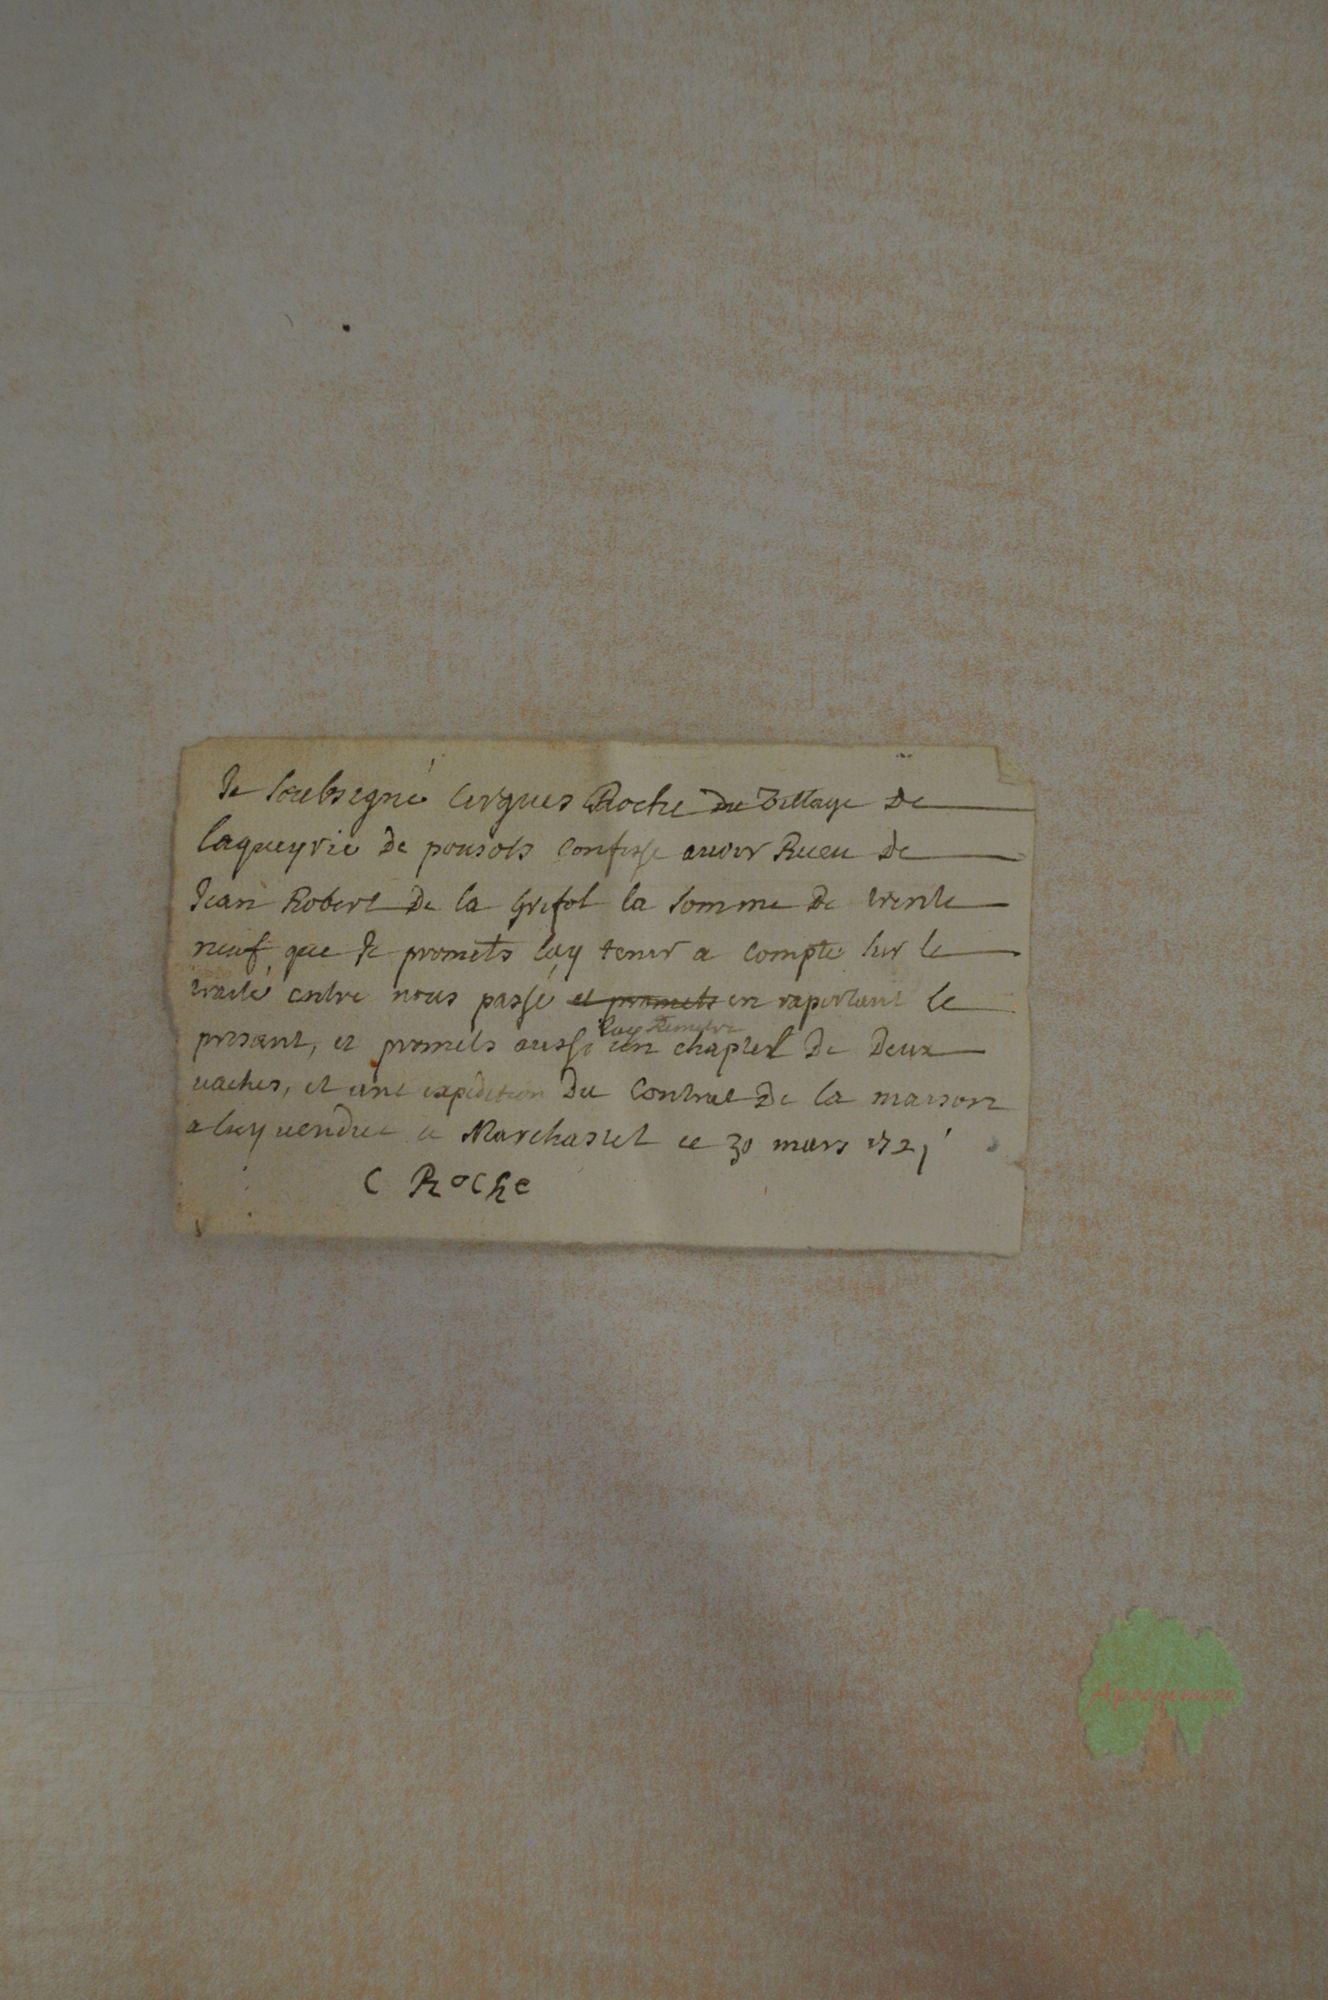 Je soubsegné Cirgues Roche du village de
laqueyrie de pousols confesse avoir Receu de
Jean Robert de la Grifol la somme de trente
neuf que Je promets luy tenir a compte sur le
traité entre nous passé et promets en raportant le
luy Remetre
presant, et promets aussi un chaptel de deux
vaches, et une expedition du Contrat de la maison
a luy vendue a Marchastel ce 30 mars 1721
C Roche
Approgemere